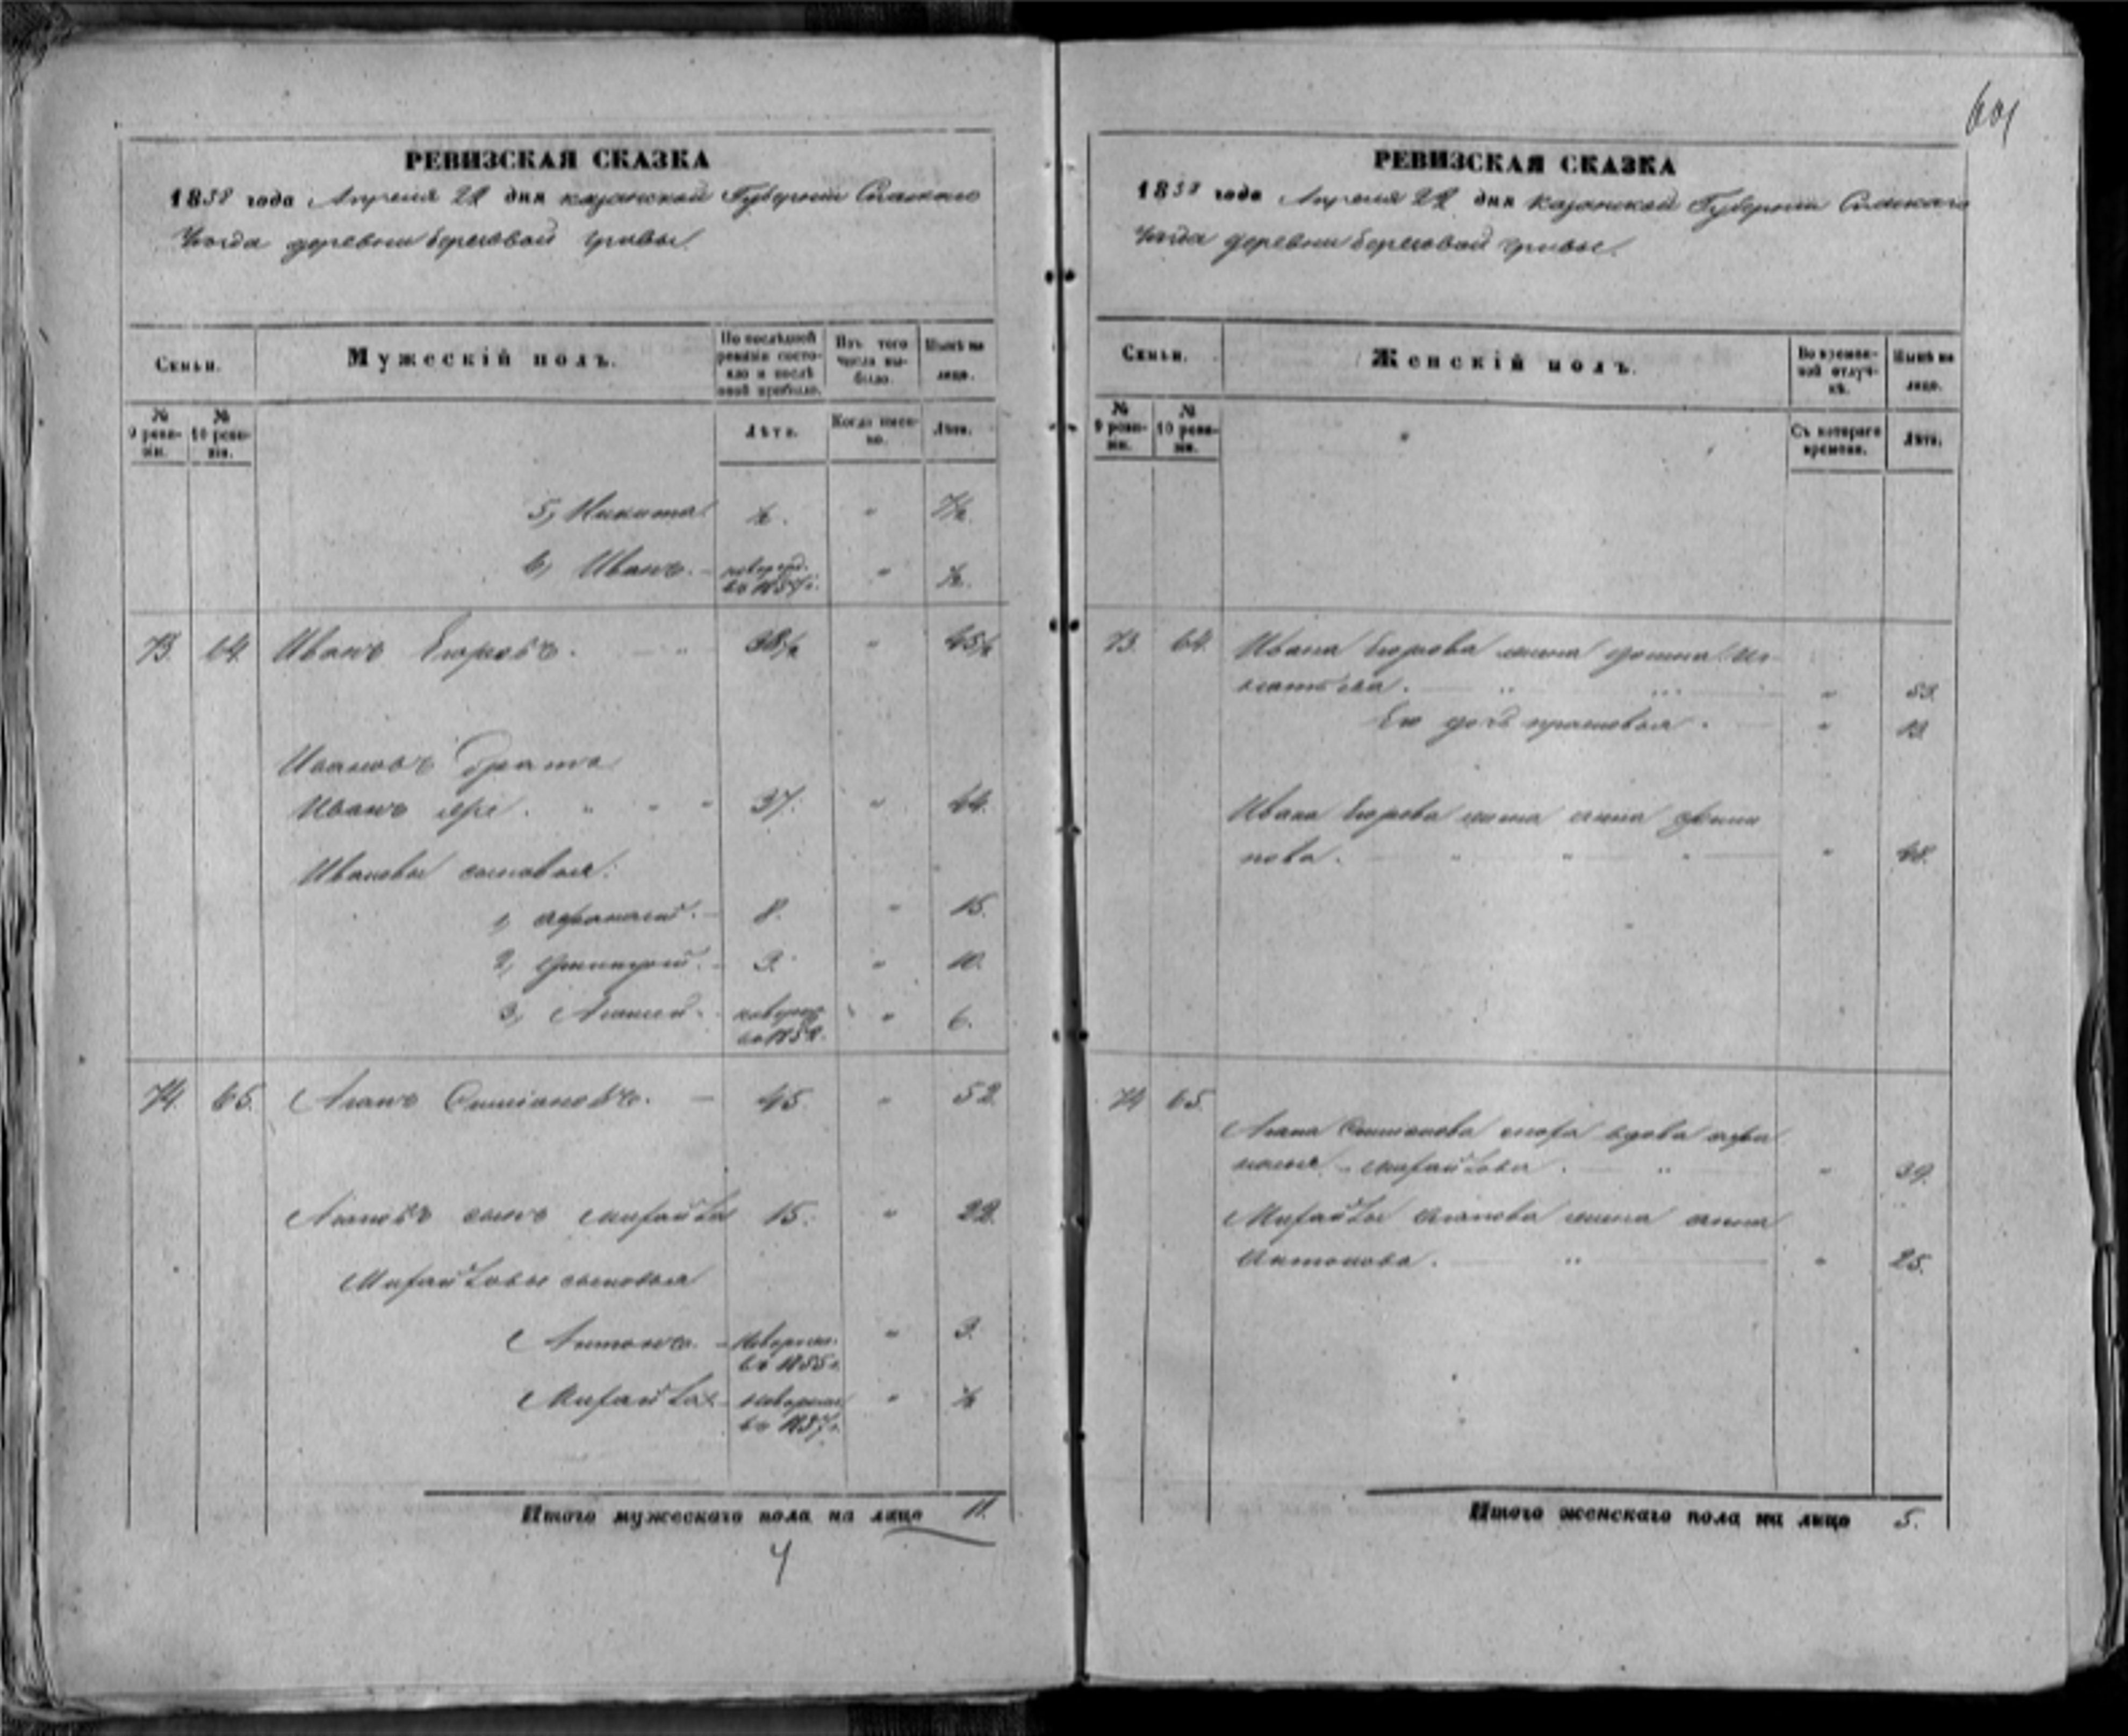 601
РЕВИЗСКАЯ СКАЗКА
1858 года Апреля 22 дня казанской Губернии Спаского
Уезда деревни березовой гривы.
Семьи.
Мужескій полъ.
По послѣдней ревизіи состояло и послѣ оной прибыло.
Изъ того числа выбыло.
Нынѣ на лицо.
№ 9 ревизіи.
№ 10 ревизіи.
Лѣта.
Когда именно.
Лѣта.
5, Никита ½. " 7½.
6, Иванъ. новорожд. въ 1857г. " ½.
73. 64. Иванъ Егоровъ. 38½ " 45½
Ивановъ братъ
Иванъ же. " " " 37. " 44.
Ивановы сыновья:
1, афанасий. 8. " 15.
2, 3. " 10.
3, новорож. въ 1852. " 6.
74. 65. 45. " 52.
сынъ михайла 15. " 22.
Михайловы сыновья
Антонъ. новорожд. въ 1855г. " 3.
Михайла новорожд. въ 1857г. " ½
Итого мужескаго пола на лицо 11.
4
РЕВИЗСКАЯ СКАЗКА
1858 года Апреля 22 дня Казанской Губернии Спаского
Уезда деревни березовой гривы.
Семьи.
Женскій полъ.
Во временной отлучкѣ.
Нынѣ на лицо.
№ 9 ревизіи.
№ 10 ревизіи.
Съ котораго времени.
Лѣта.
73. 64. Ивана Егорова жена Иг-
натьева. " 53.
Его дочь прасковья. " 13.
Ивана Егорова жена анна
" 48.
74 65.
вдова афа
михайлова. " 39.
Михайлы жена анна
Антонова. " 25.
Итого женскаго пола на лицо 5.